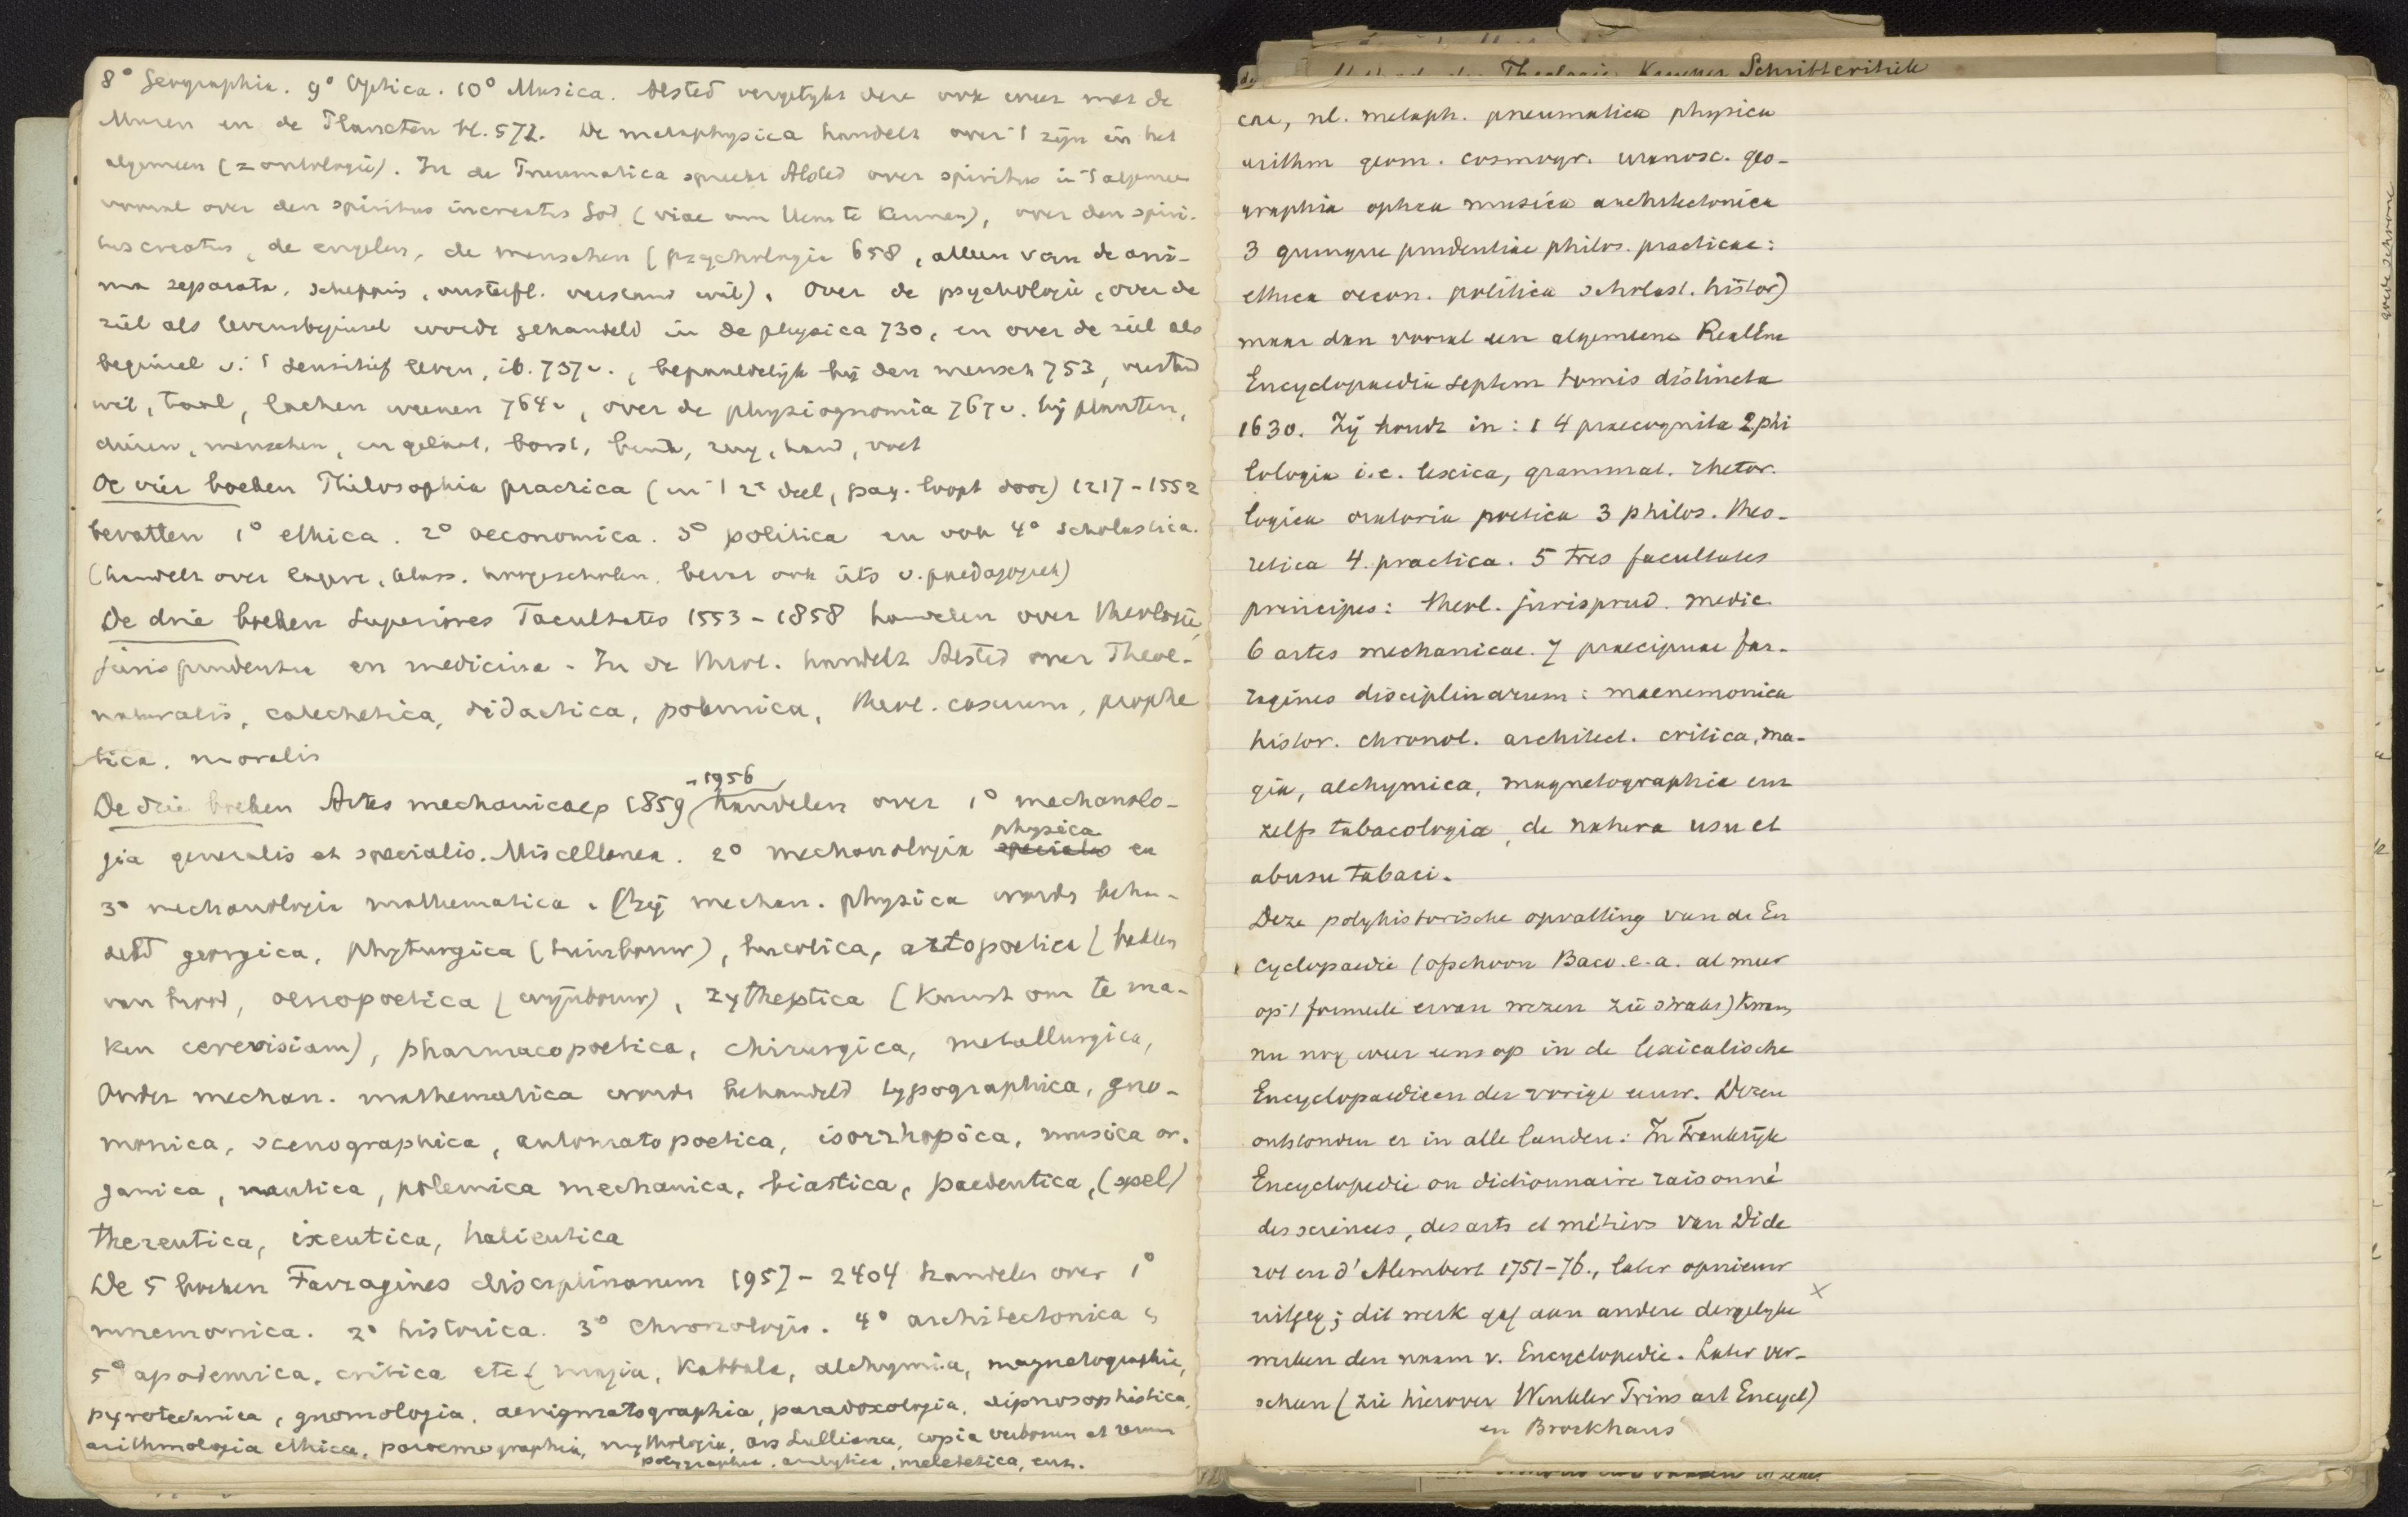 8° Geographia. 9° Optica. 10° Musica. Alsted vergelykt deze ook weer met de
Muzen en de Planeten bl. 572. De metaphysica handelt over 't zyn in het
algemeen (= ontologie). In de Pneumatica spreekt Alsted over spiritus in 't algemeen
vooral over den spiritus increatus God (viae om Hem te kennen), over den spiri-
tus creatus, de engelen, de menschen (psychologie 658, alleen van de ani-
ma separata, scheppis, onsterfl. verstand wil). Over de psychologie, over de
ziel als levensbeginsel wordt gehandeld in de physica 730, en over de ziel als
beginsel v. 't sensitief leven, ib. 737v., bepaaldelyk bij den mensch 753, verstand
wil, taal, lachen weenen 764v, over de physiognomia 767v. bij planten,
dieren, menschen, en gelaat, borst, buik, rug, hand, voet
De vier boeken Philosophia practica (in 't 2e deel, pag. loopt door) 1217-1552
bevatten 1° ethica. 2° oeconomica. 3° politica en ook 4° scholastica.
(handelt over lagere, klass. hoogescholen. bevat ook iets v. paedagogiek)
De drie boeken Superiores Facultates 1553-1858 handelen over theologie,
jurisprudentia en medicina. In de theol. handelt Alsted over Theol.
naturalis, catechetica, didactica, polemica, theol. casuum, prophe
tica, moralis
De drie boeken Artes mechanicae, 1859 -1956 handelen over 1° mechanolo-
gia generalis et specialis. Miscellanea. 2° mechanologia physica en
3° mechanologia mathematica. (bij mechan. physica wordt behan-
deld georgica, phyturgica (tuinbouw), bucolica, artopoetica (bakken
van brood, oenopoetica (wijnbouw), zytheptica (kunst om te ma-
ken cerevisiam), pharmacopoetica, chirurgica, metallurgica,
Onder mechan. mathematica wordt behandeld typographica, gno-
monica, scenographica, automatopoetica, isorrhopica, musica or-
ganica, nautica, polemica mechanica, biastica, paedeutica, (spel)
thereutica, ixeutica, halieutica
De 5 boeken Farragines disciplinarum 1957-2404 handelen over 1°
mnemonica. 2° historica. 3° Chronologie. 4° architectonica
5° apodemica, critica etc (magia, Kabbala, alchymia, magnetographie,
pyrotechnica, gnomologia, aenigmatographia, paradoxologia, dipnosophistica,
arithmologia ethica, paroemographia, mythologia, ars Lulliana, copia verborum et rerum
polygraphia, analytica, meletetica, enz.
Theologie Kuenen Schriftcritiek
cae, nl. metaph. pneumatica physica
arithm geom. cosmogr. uranosc. geo-
graphia optica musica architectonica
3 quinque prudentiae philos. practicae:
ethica oecon. politica scholast. histor)
maar dan vooral een algemeene RealEnc
Encyclopaedia septem tomis distincta
1630. Zij houdt in: 1 4 praecognita 2 phi
lologia i.e. lexica, grammat. rhetor.
logica oratoria poetica 3 philos. theo-
retica 4. practica. 5 tres facultates
principes: theol. jurisprud. medic.
6 artes mechanicae. 7 praecipuae far-
ragines disciplinarum: mnemonica
histor. chronol. architect. critica, ma-
gia, alchymica, magnetographia enz
zelfs tabacologia, de natura usu et
abusu tabaci.
Deze polyhistorische opvatting van de En
cyclopaedie (ofschoon Baco e.a. al meer
op 't formeele ervan wezen zie straks) kwam
nu nog weer eens op in de lexicalische
Encyclopaedieen der vorige eeuw. Dezen
ontstonden er in alle landen: In Frankrijk
Encyclopedie ou dictionnaire raisonné
des sciences, des arts et métiers van Dide
rot en d'Alembert 1751-76., later opnieuw
uitgeg; dit werk gaf aan andere dergelyke
werken den naam v. Encyclopedie. Later ver-
scheen (zie hierover Winkler Prins art Encycl)
en Brockhaus